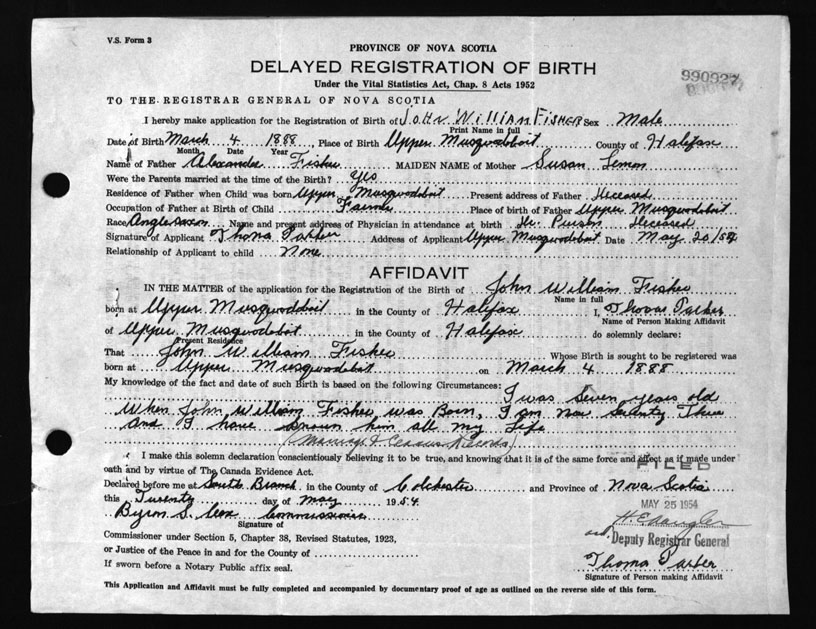 V.S. Form 3
PROVINCE OF NOVA SCOTIA
DELAYED REGISTRATION OF BIRTH
990927
Under the Vital Statistics Act, Chap. 8 Acts 1952
TO THE REGISTRAR GENERAL OF NOVA SCOTIA
I hereby make application for the Registration of Birth of JOHN WILLIAM FISHER Sex Male
Print Name in full
Date of Birth March 4 1888, Place of Birth Upper Musquodoboit County of Halifax
Month Date Year
Name of Father Alexander Fisher MAIDEN NAME of Mother Susan Lemon
Were the Parents married at the time of the Birth? Yes
Residence of Father when Child was born Upper Musquodoboit Present address of Father Deceased
Occupation of Father at Birth of Child Farmer Place of birth of Father Upper Musquodoboit
Race Anglo Saxon Name and present address of Physician in attendance at birth Dr. Deceased
Signature of Applicant Thoma Parker Address of Applicant Upper Musquodoboit Date May 20/54
Relationship of Applicant to child None
AFFIDAVIT
IN THE MATTER of the application for the Registration of the Birth of John William Fisher
Name in full
born at Upper Musquodoboit in the County of Halifax I, Thoma Parker
Name of Person Making Affidavit
of Upper Musquodoboit in the County of Halifax do solemnly declare:
Present Residence
That John William Fisher Whose Birth is sought to be registered was
born at Upper Musquodoboit on March 4 1888
My knowledge of the fact and date of such Birth is based on the following Circumstances:
I was seven years old
When John William Fisher was Born, I am now Seventy Three
And I have known him all my Life
(Marriage & Census Records)
I make this solemn declaration conscientiously believing it to be true, and knowing that it is of the same force and effect as if made under
oath and by virtue of The Canada Evidence Act.
FILED
Declared before me at South Branch in the County of Colchester and Province of Nova Scotia
this Twenty day of May 1954
MAY 25 1954
Byron S. Cox Commissioner
Signature of
Commissioner under Section 5, Chapter 38, Revised Statutes, 1923,
Deputy Registrar General
or Justice of the Peace in and for the County of
Thoma Parker
If sworn before a Notary Public affix seal.
Signature of Person making Affidavit
This Application and Affidavit must be fully completed and accompanied by documentary proof of age as outlined on the reverse side of this form.